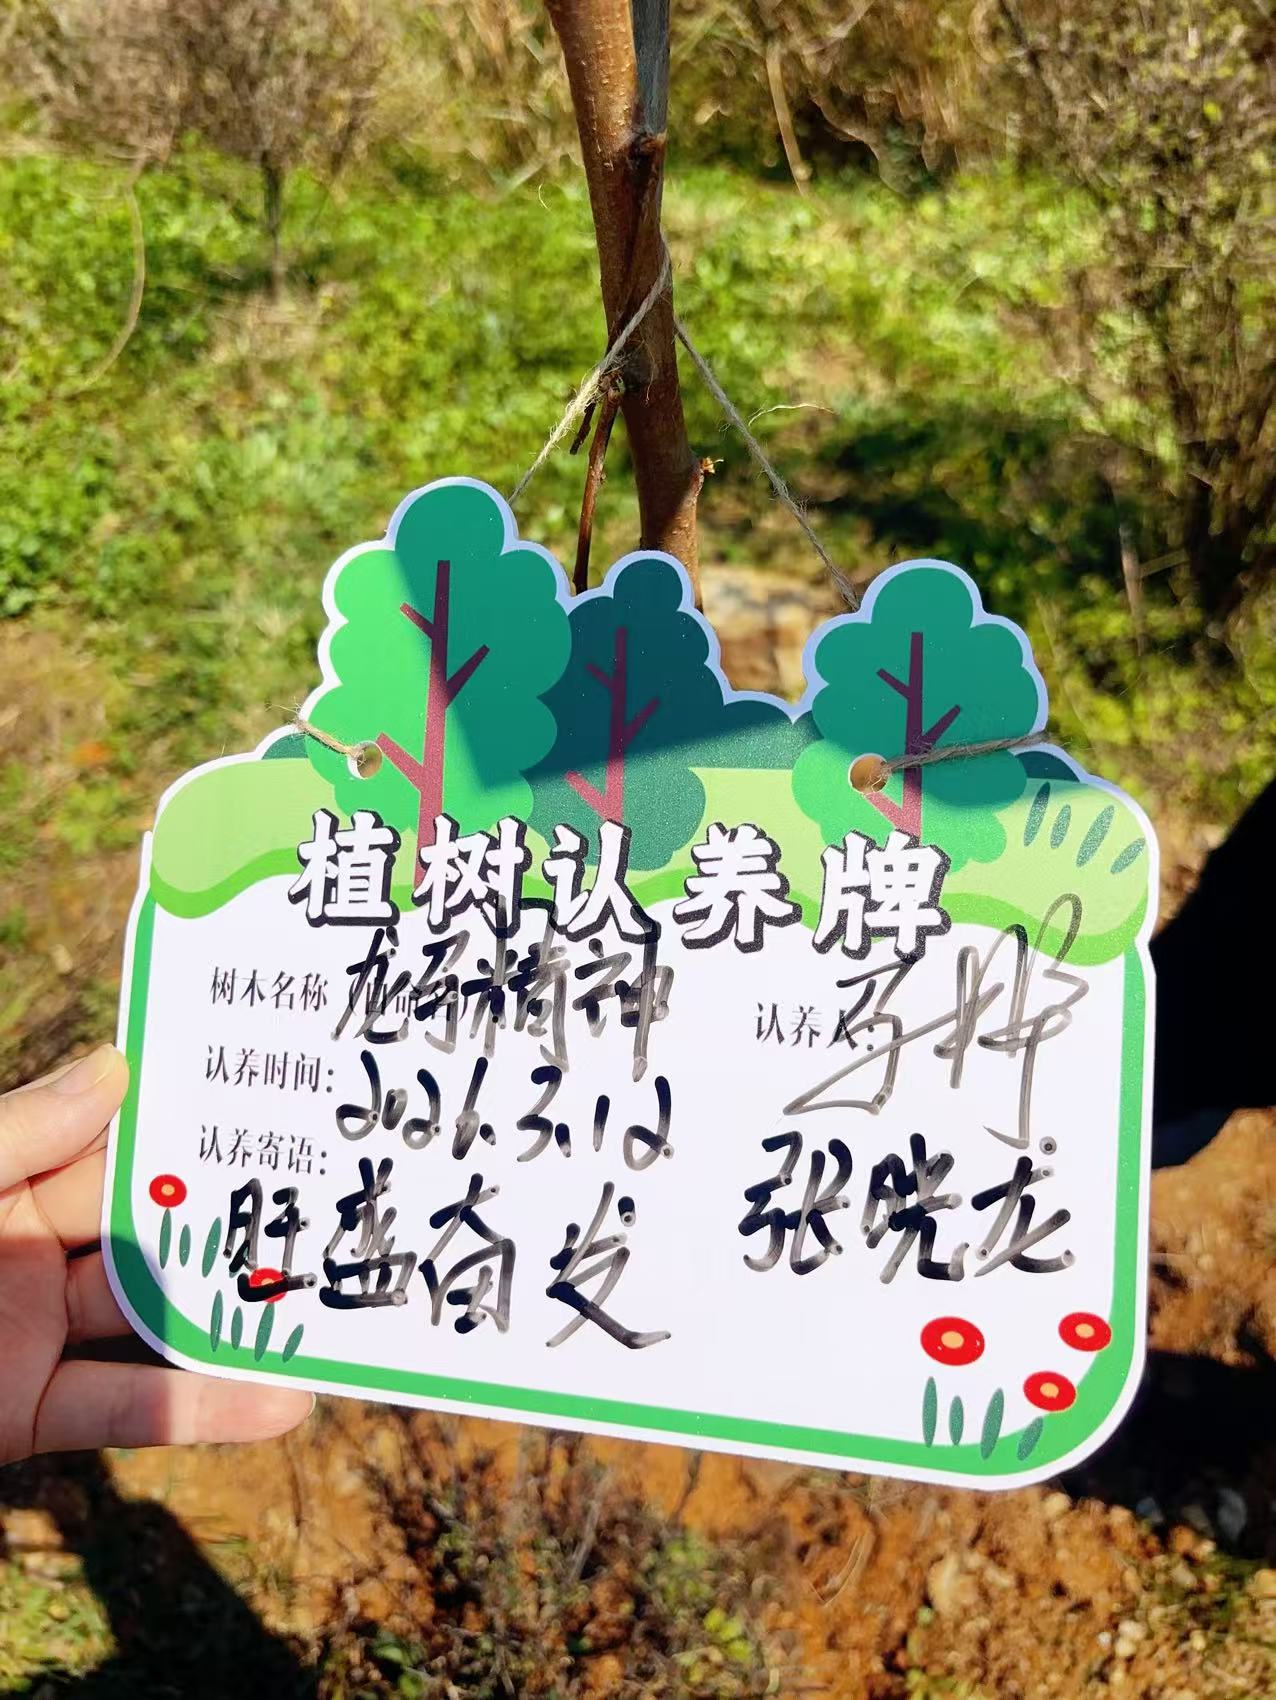 植树认养牌
树木名称（自命名）龙马精神
认养人：马
认养时间：2026.3.12
认养寄语：
盛奋发
张晓龙